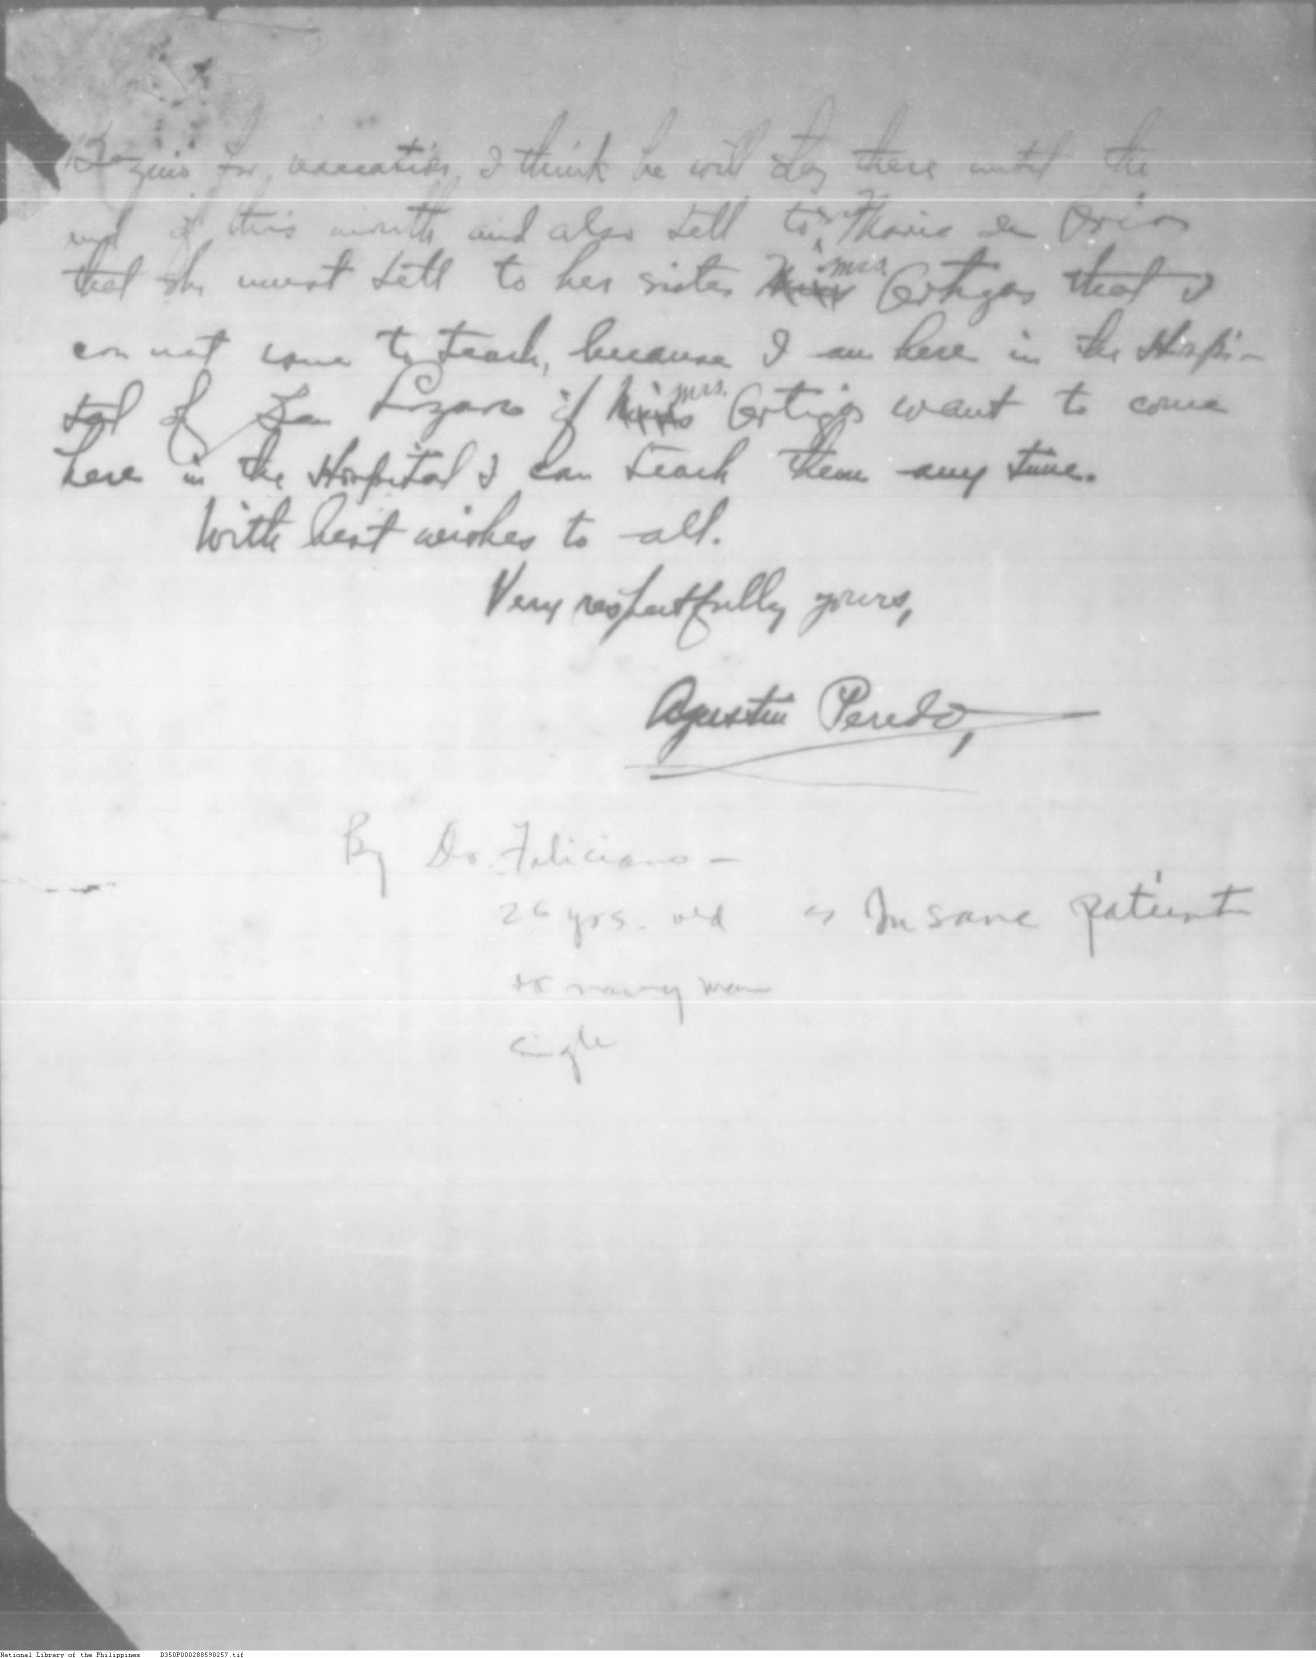 Baguio for vacation, I think he will stay there until the
end of this month and also tell to Maria
that she must tell to her sister Miss Mrs. Ortigas that I
can not come to teach, because I am here in the Hospi-
tal of San Lazaro if Miss Mrs. Ortigas want to come
here in the Hospital I can teach them any time.
With best wishes to all.
Very respectfully yours,
Agustin Peredo,
By Dr. Feliciano –
26 yrs. old as Insane patient
navy man
single
National Library of the Philippines D350P000288598257.tif